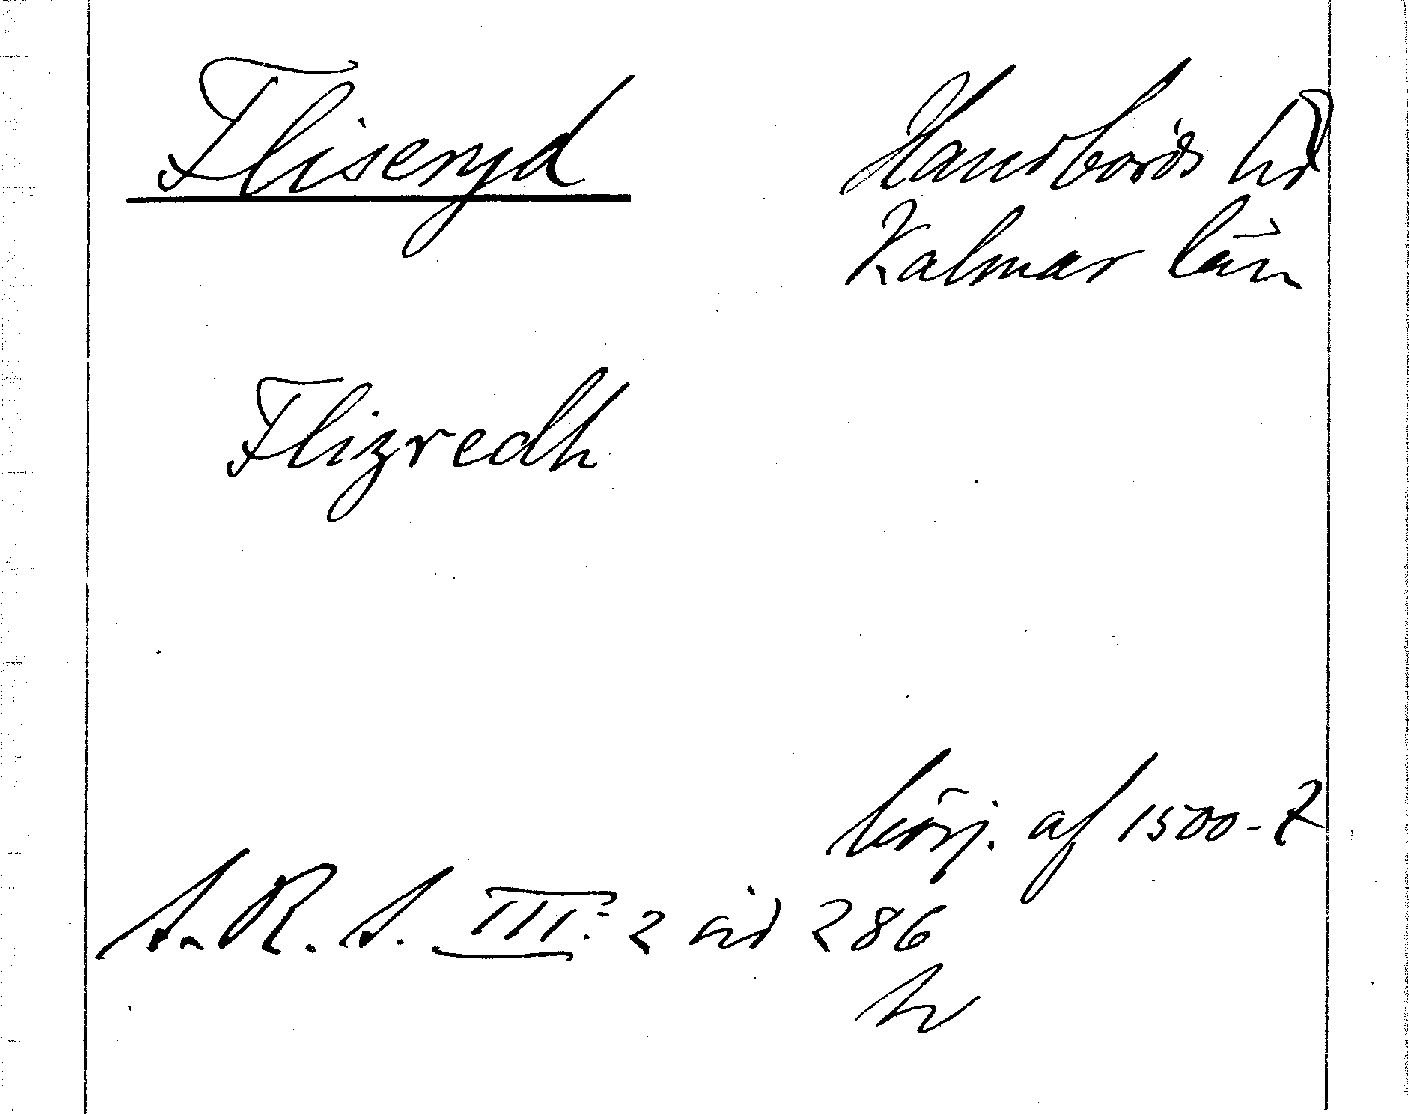 Fliseryd Handbörds hd
Kalmar län
Flizredh
börj. af 1500-t
S.R.S. III:2 sid 286